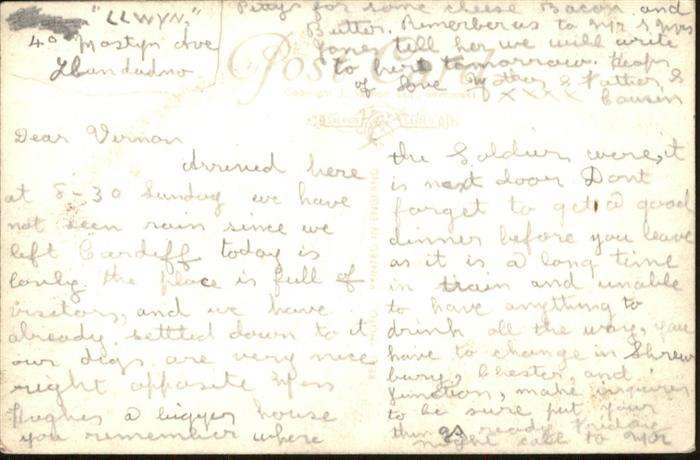 "LLWYN."
40 Mostyn Ave
Llandudno
Dear Vernon
Arrived here
at 8-30 Sunday we have
not seen rain since we
left Cardiff today is
lovly the place is full of
visitors, and we have
already settled down to it
our digs are very nice
right opposite Mrs
Hughes a bigger house
you remember where
the Soldiers were, it
is next door Dont
forget to get a good
dinner before you leave
as it is a long time
in train and unable
to have anything to
drink all the way, you
have to change in Shrews
bury, Chester, and
Junction, make inquires
to be sure put your
things ready Friday
night call to Mr
for some cheese Bacon and
Butter. Remember us to Mr & Mrs
Jones tell her we will write
to her tomorrow. Heaps
of love Mother & Father &
XXXX Cousin
Post Card
PRINTED IN ENGLAND